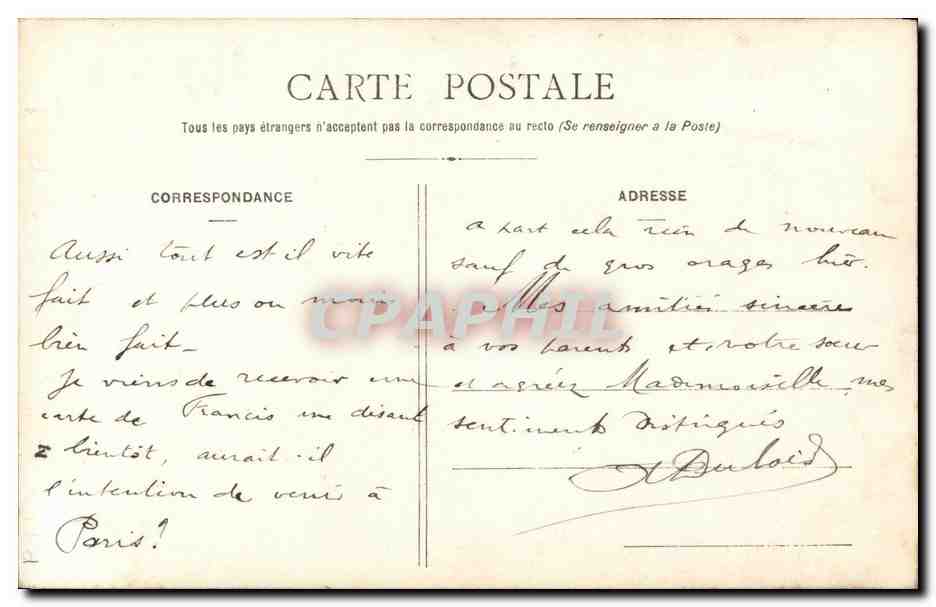 CARTE POSTALE
Tous les pays étrangers n'acceptent pas la correspondance au recto (Se renseigner a la Poste)
CORRESPONDANCE
Aussi tout est il vite
fait et plus ou moins
bien fait -
Je viens de recevoir une
carte de Francis me disant
à bientôt, aurait-il
l'intention de venir à
Paris?
ADRESSE
A part cela rien de nouveau
sauf de gros orages hier.
Mes amitiés sincères
à vos parents et votre soeur
et agréez Mademoiselle mes
sentiments distingués
Dubois
CPAPHIL